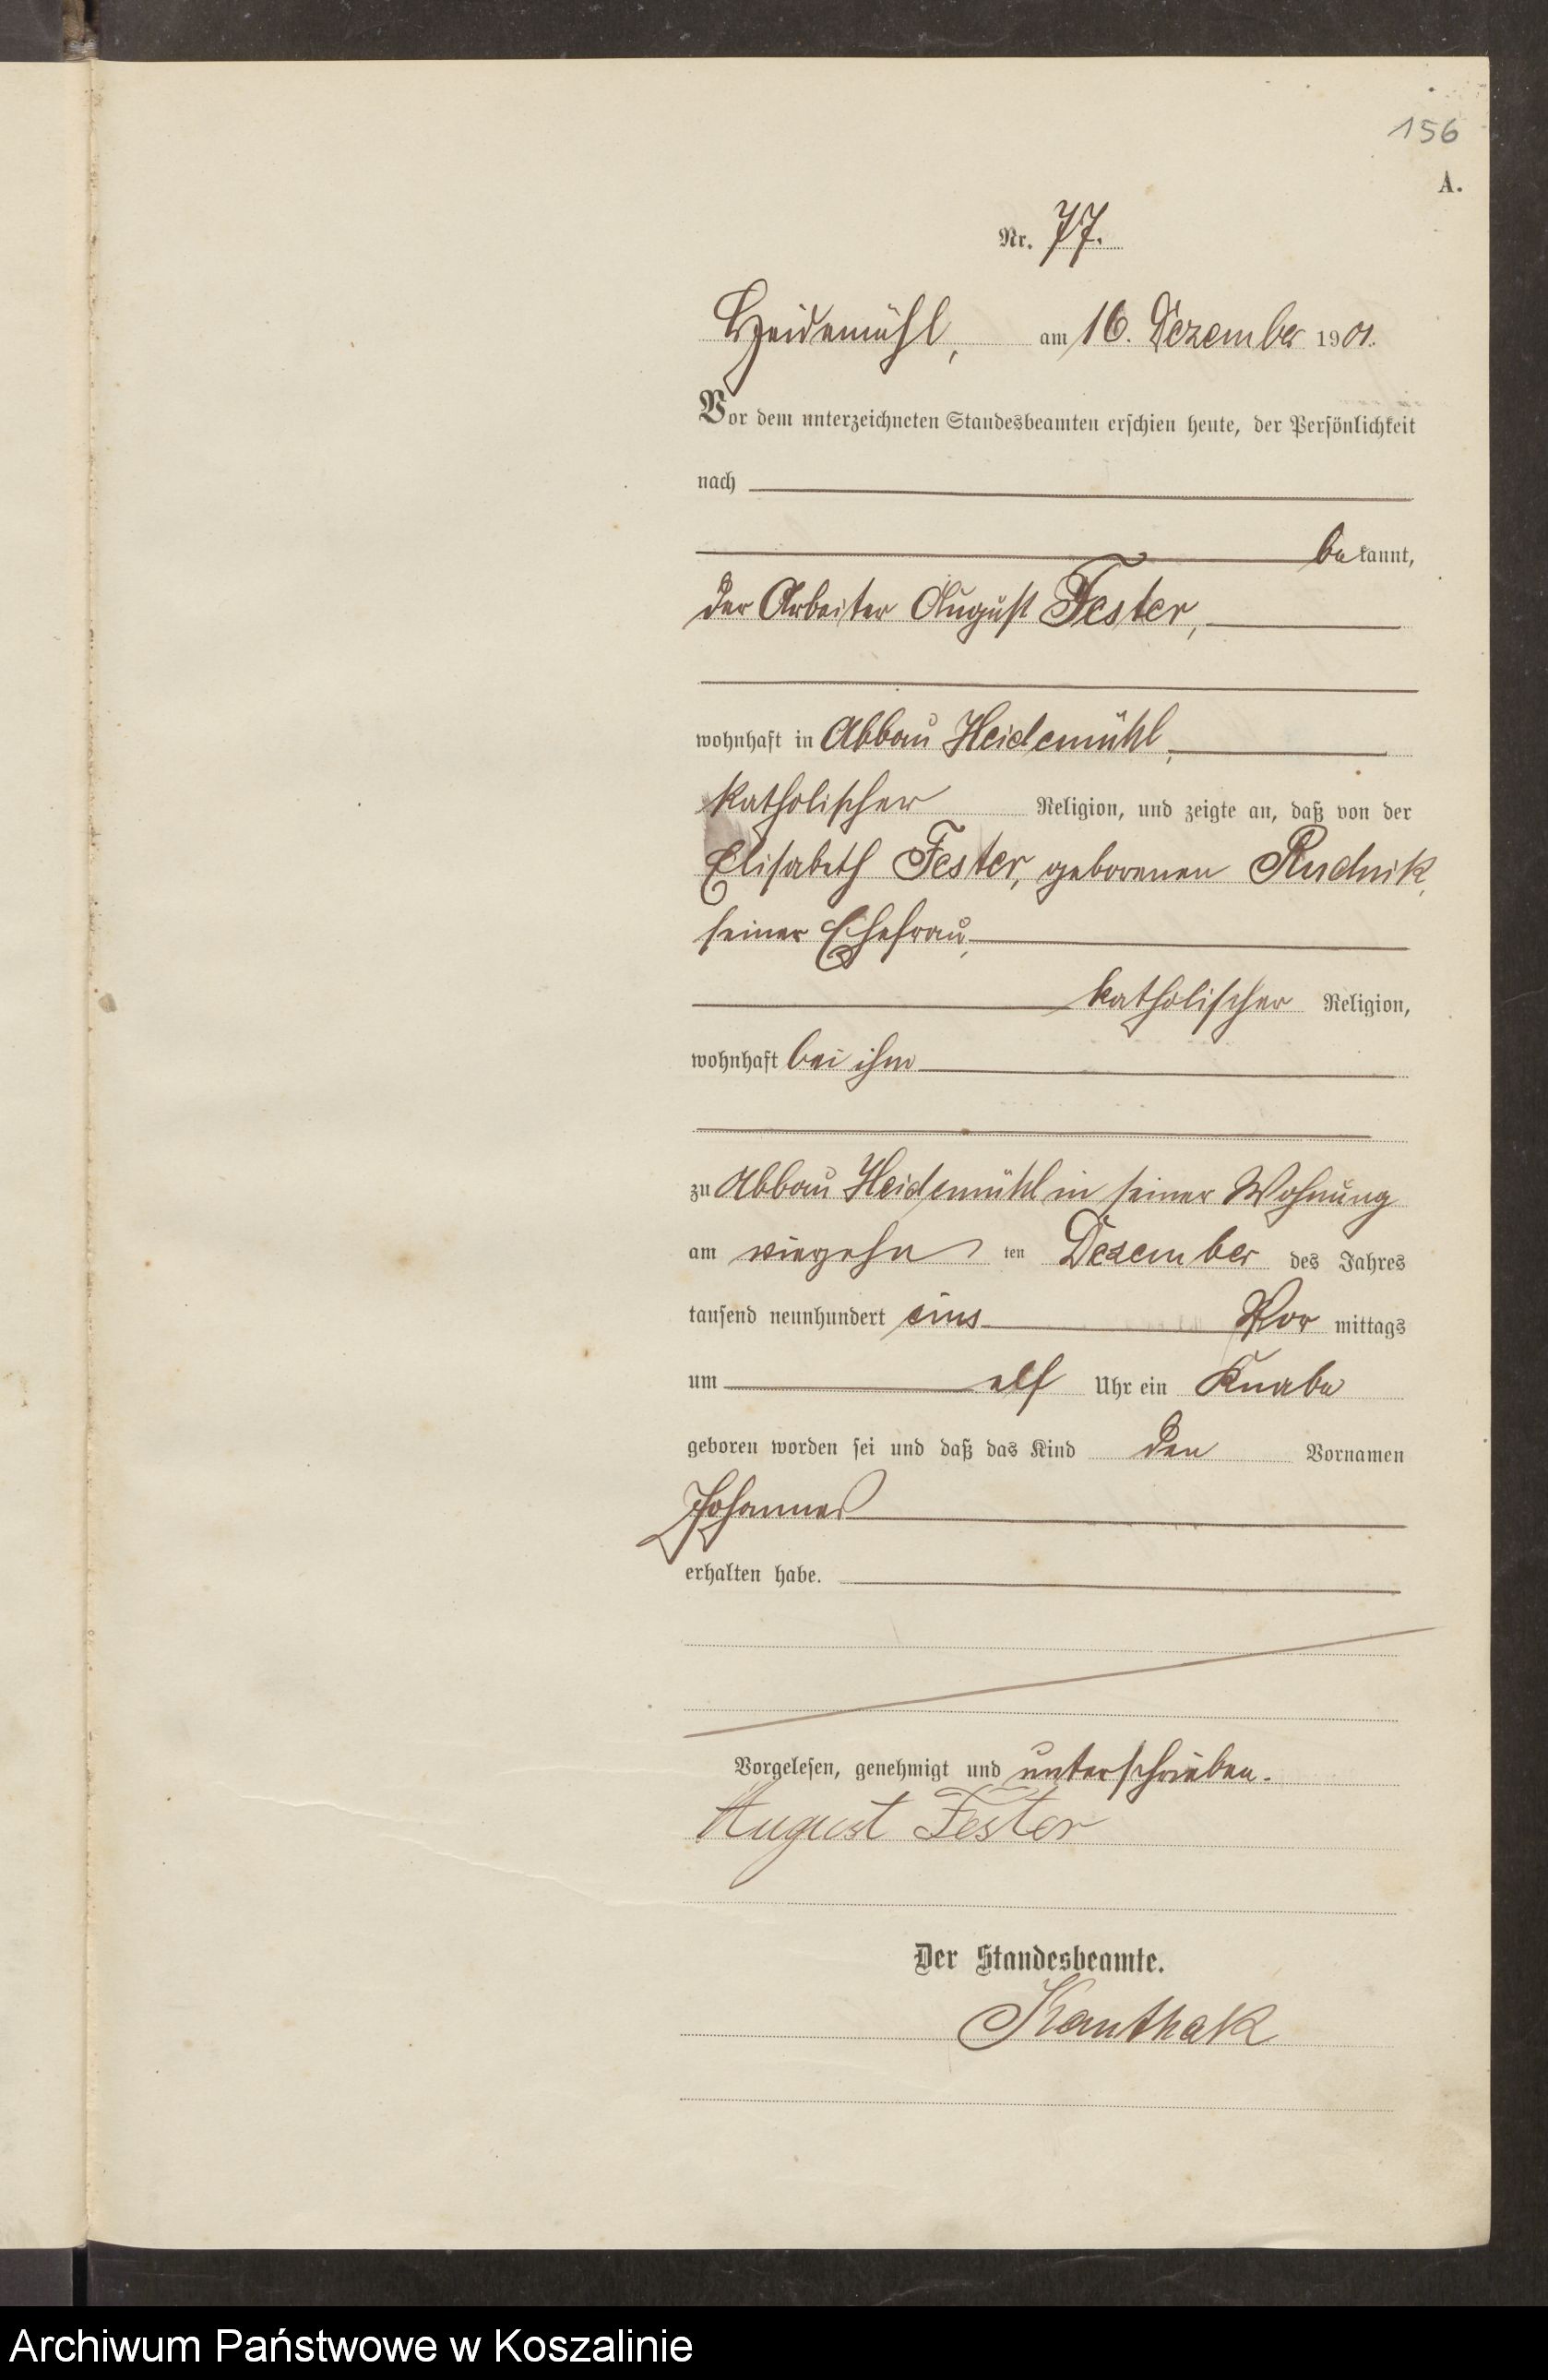 156
A.
Nr. 77.
Heidemühl, am 16. Dezember 1901.
Vor dem unterzeichneten Standesbeamten erschien heute, der Persönlichkeit
nach
bekannt,
der Arbeiter August Fester,
wohnhaft in Abbau Heidemühl,
katholischer Religion, und zeigte an, daß von der
Elisabeth Fester, geborenen Rudnik,
seiner Ehefrau,
katholischer Religion,
wohnhaft bei ihm
zu Abbau Heidemühl in seiner Wohnung
am vierzehn ten Dezember des Jahres
tausend neunhundert eins Vor mittags
um elf Uhr ein Knabe
geboren worden sei und daß das Kind den Vornamen
Johannes
erhalten habe.
Vorgelesen, genehmigt und unterschrieben.
August Fester
Der Standesbeamte.
Kauthak
Archiwum Państwowe w Koszalinie